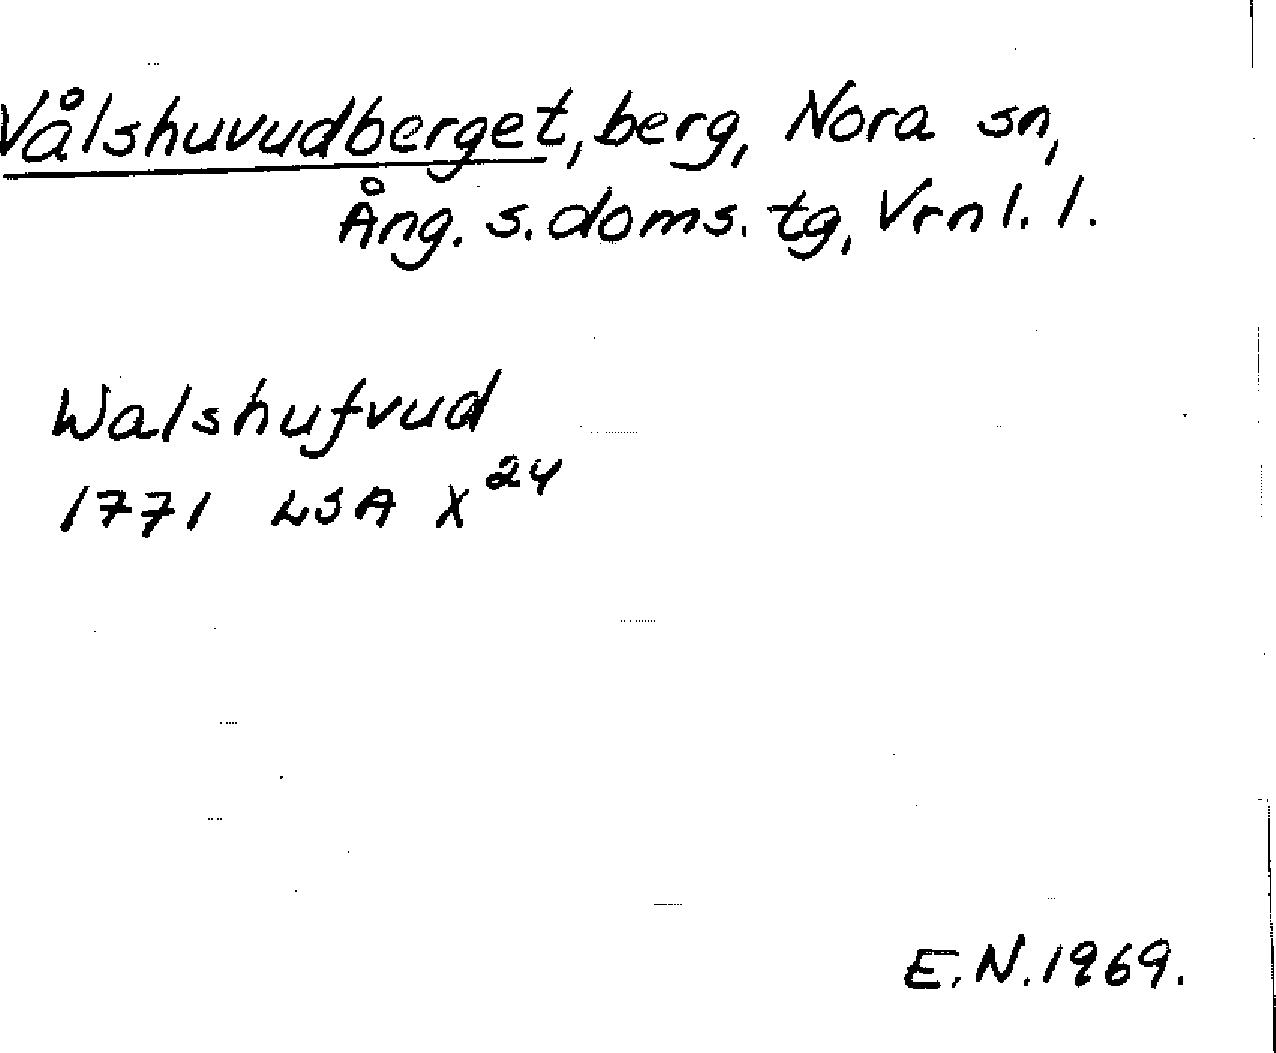 Vålshuvudberget, berg, Nora sn,
Ång. s. doms. tg, Vrnl. l.
Walshufvud
1771 LSA X 24
E.N. 1969.